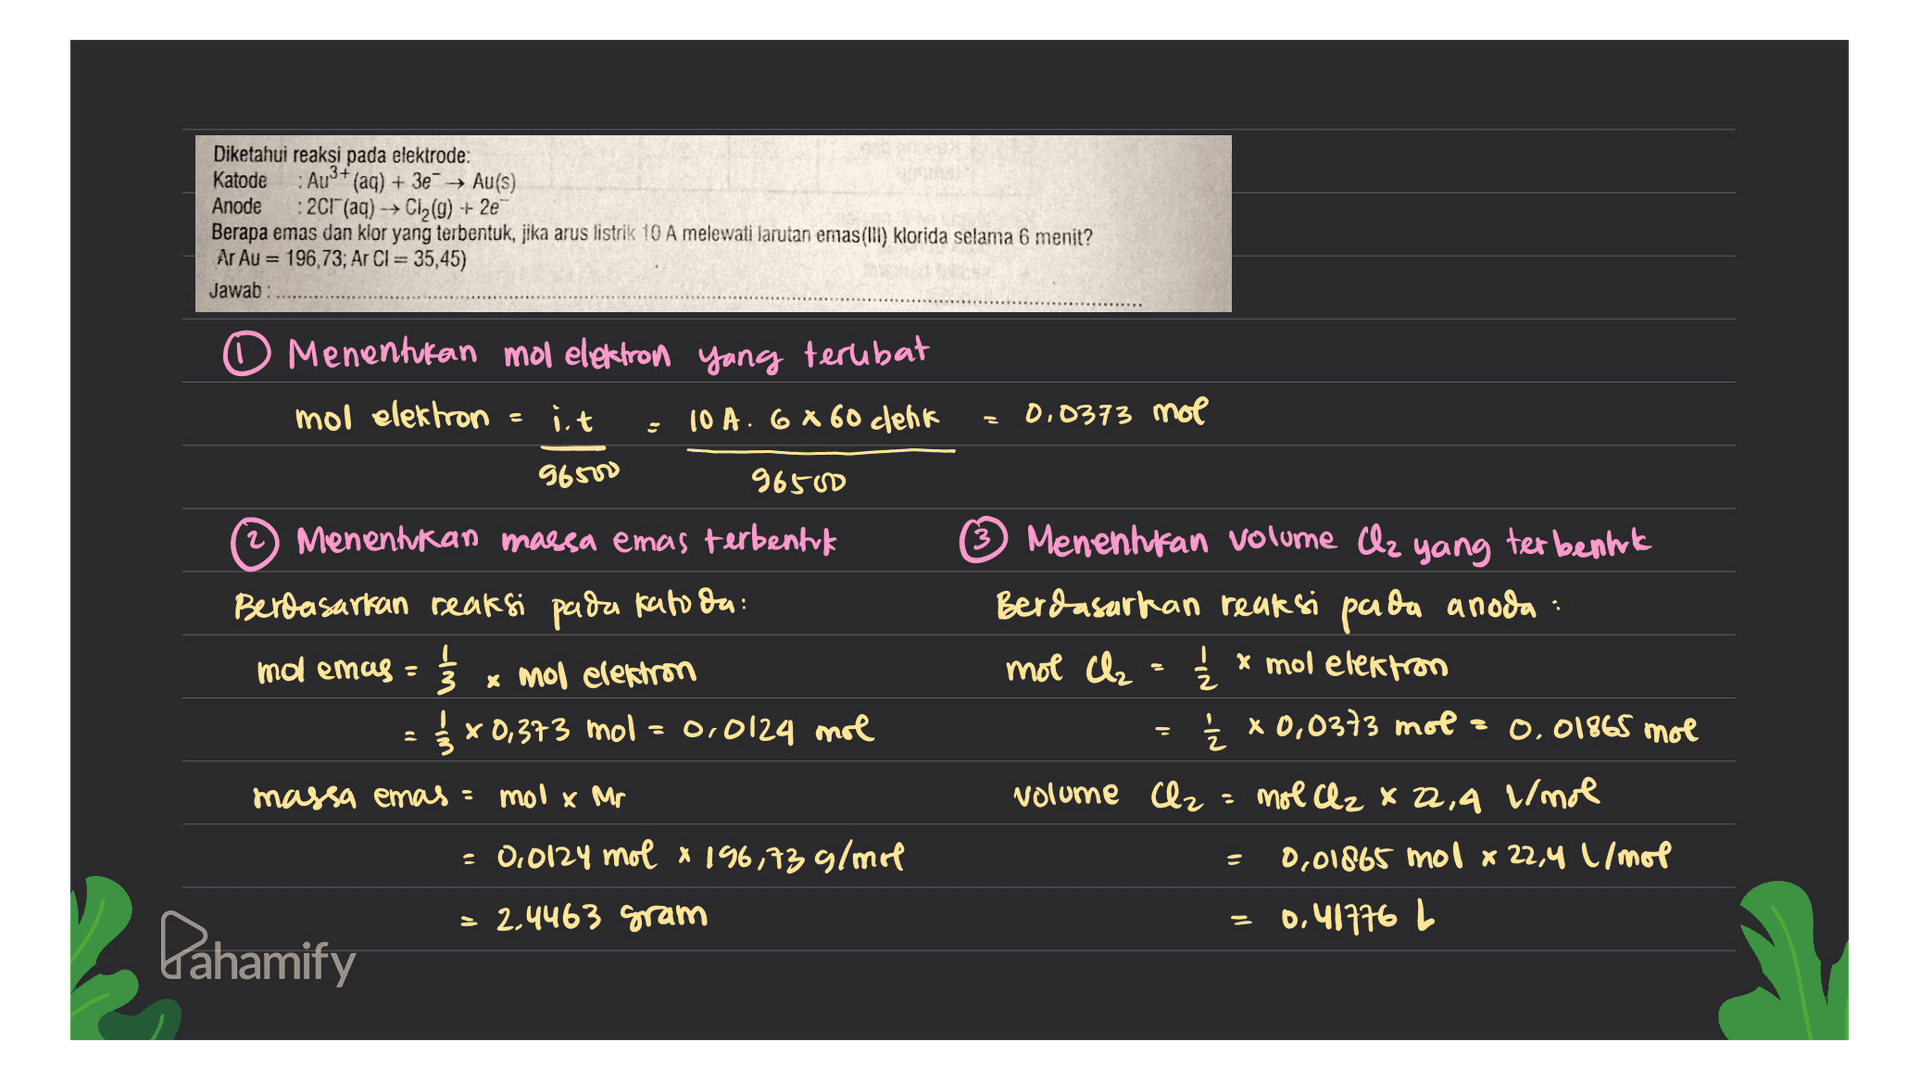 Diketahui reaksi pada elektrode:
Katode : Au³⁺(aq) + 3e⁻ → Au(s)
Anode : 2Cl⁻(aq) → Cl₂(g) + 2e⁻
Berapa emas dan klor yang terbentuk, jika arus listrik 10 A melewati larutan emas(III) klorida selama 6 menit?
Ar Au = 196,73; Ar Cl = 35,45)
Jawab : ........................................................................
① Menentukan mol elektron yang terlibat
mol elektron = i.t / 96500 = 10 A . 6 x 60 detik / 96500 = 0,0373 mol
② Menentukan massa emas terbentuk
Berdasarkan reaksi pada katoda:
mol emas = 1/3 x mol elektron
= 1/3 x 0,373 mol = 0,0124 mol
massa emas = mol x Mr
= 0,0124 mol x 196,73 g/mol
= 2,4463 gram
③ Menentukan volume Cl₂ yang terbentuk
Berdasarkan reaksi pada anoda :
mol Cl₂ = 1/2 x mol elektron
= 1/2 x 0,0373 mol = 0.01865 mol
volume Cl₂ = mol Cl₂ x 22,4 L/mol
= 0,01865 mol x 22,4 L/mol
= 0.41776 L
Pahamify